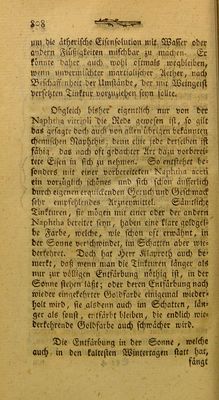 808
um die ätherische Eisensolution mit Wasser oder
andern Flüssigkeiten mischbar zu machen. Er
könnte daher auch wohl oftmals wegbleiben,
wenn unvermischter martialischer Aether, nach
Beschaffenheit der Umstände, der mit Weingeist
versetzten Tinktur vorzuziehen seyn sollte.
Obgleich bisher eigentlich nur von der
Naphtha vitrioli die Rede gewesen ist, so gilt
das gesagte doch auch von allen übrigen bekannten
chemischen Naphthis; denn eine jede derselben ist
fähig das nach oft gedachter Art dazu vorberei-
tete Eisen in sich zu nehmen. So entstehet be-
sonders mit einer vorbereiteten Naphtha aceti
ein vorzüglich schönes und sich schon äusserlich
durch eigenen erquickenden Geruch und Geschmack
sehr empfehlendes Arzneymittel. Sämtliche
Tinkturen, sie mögen mit einer oder der andern
Naphtha bereitet seyn, haben eine klare goldgel-
be Farbe, welche, wie schon oft erwähnt, in
der Sonne verschwindet, im Schatten aber wie-
derkehret. Doch hat Herr Klaproth auch be-
merkt, daß wenn man die Tinkturen länger als
nur zur völligen Entfärbung nöthig ist, in der
Sonne stehen läßt; oder deren Entfärbung nach
wieder eingekehrter Goldfarbe einigemal wieder-
holt wird, sie alsdenn auch im Schatten, län-
ger als sonst, entfärbt bleiben, die endlich wie-
derkehrende Goldfarbe auch schwächer wird.
Die Entfärbung in der Sonne, welche
auch in den kaltesten Wintertagen statt hat,
fängt